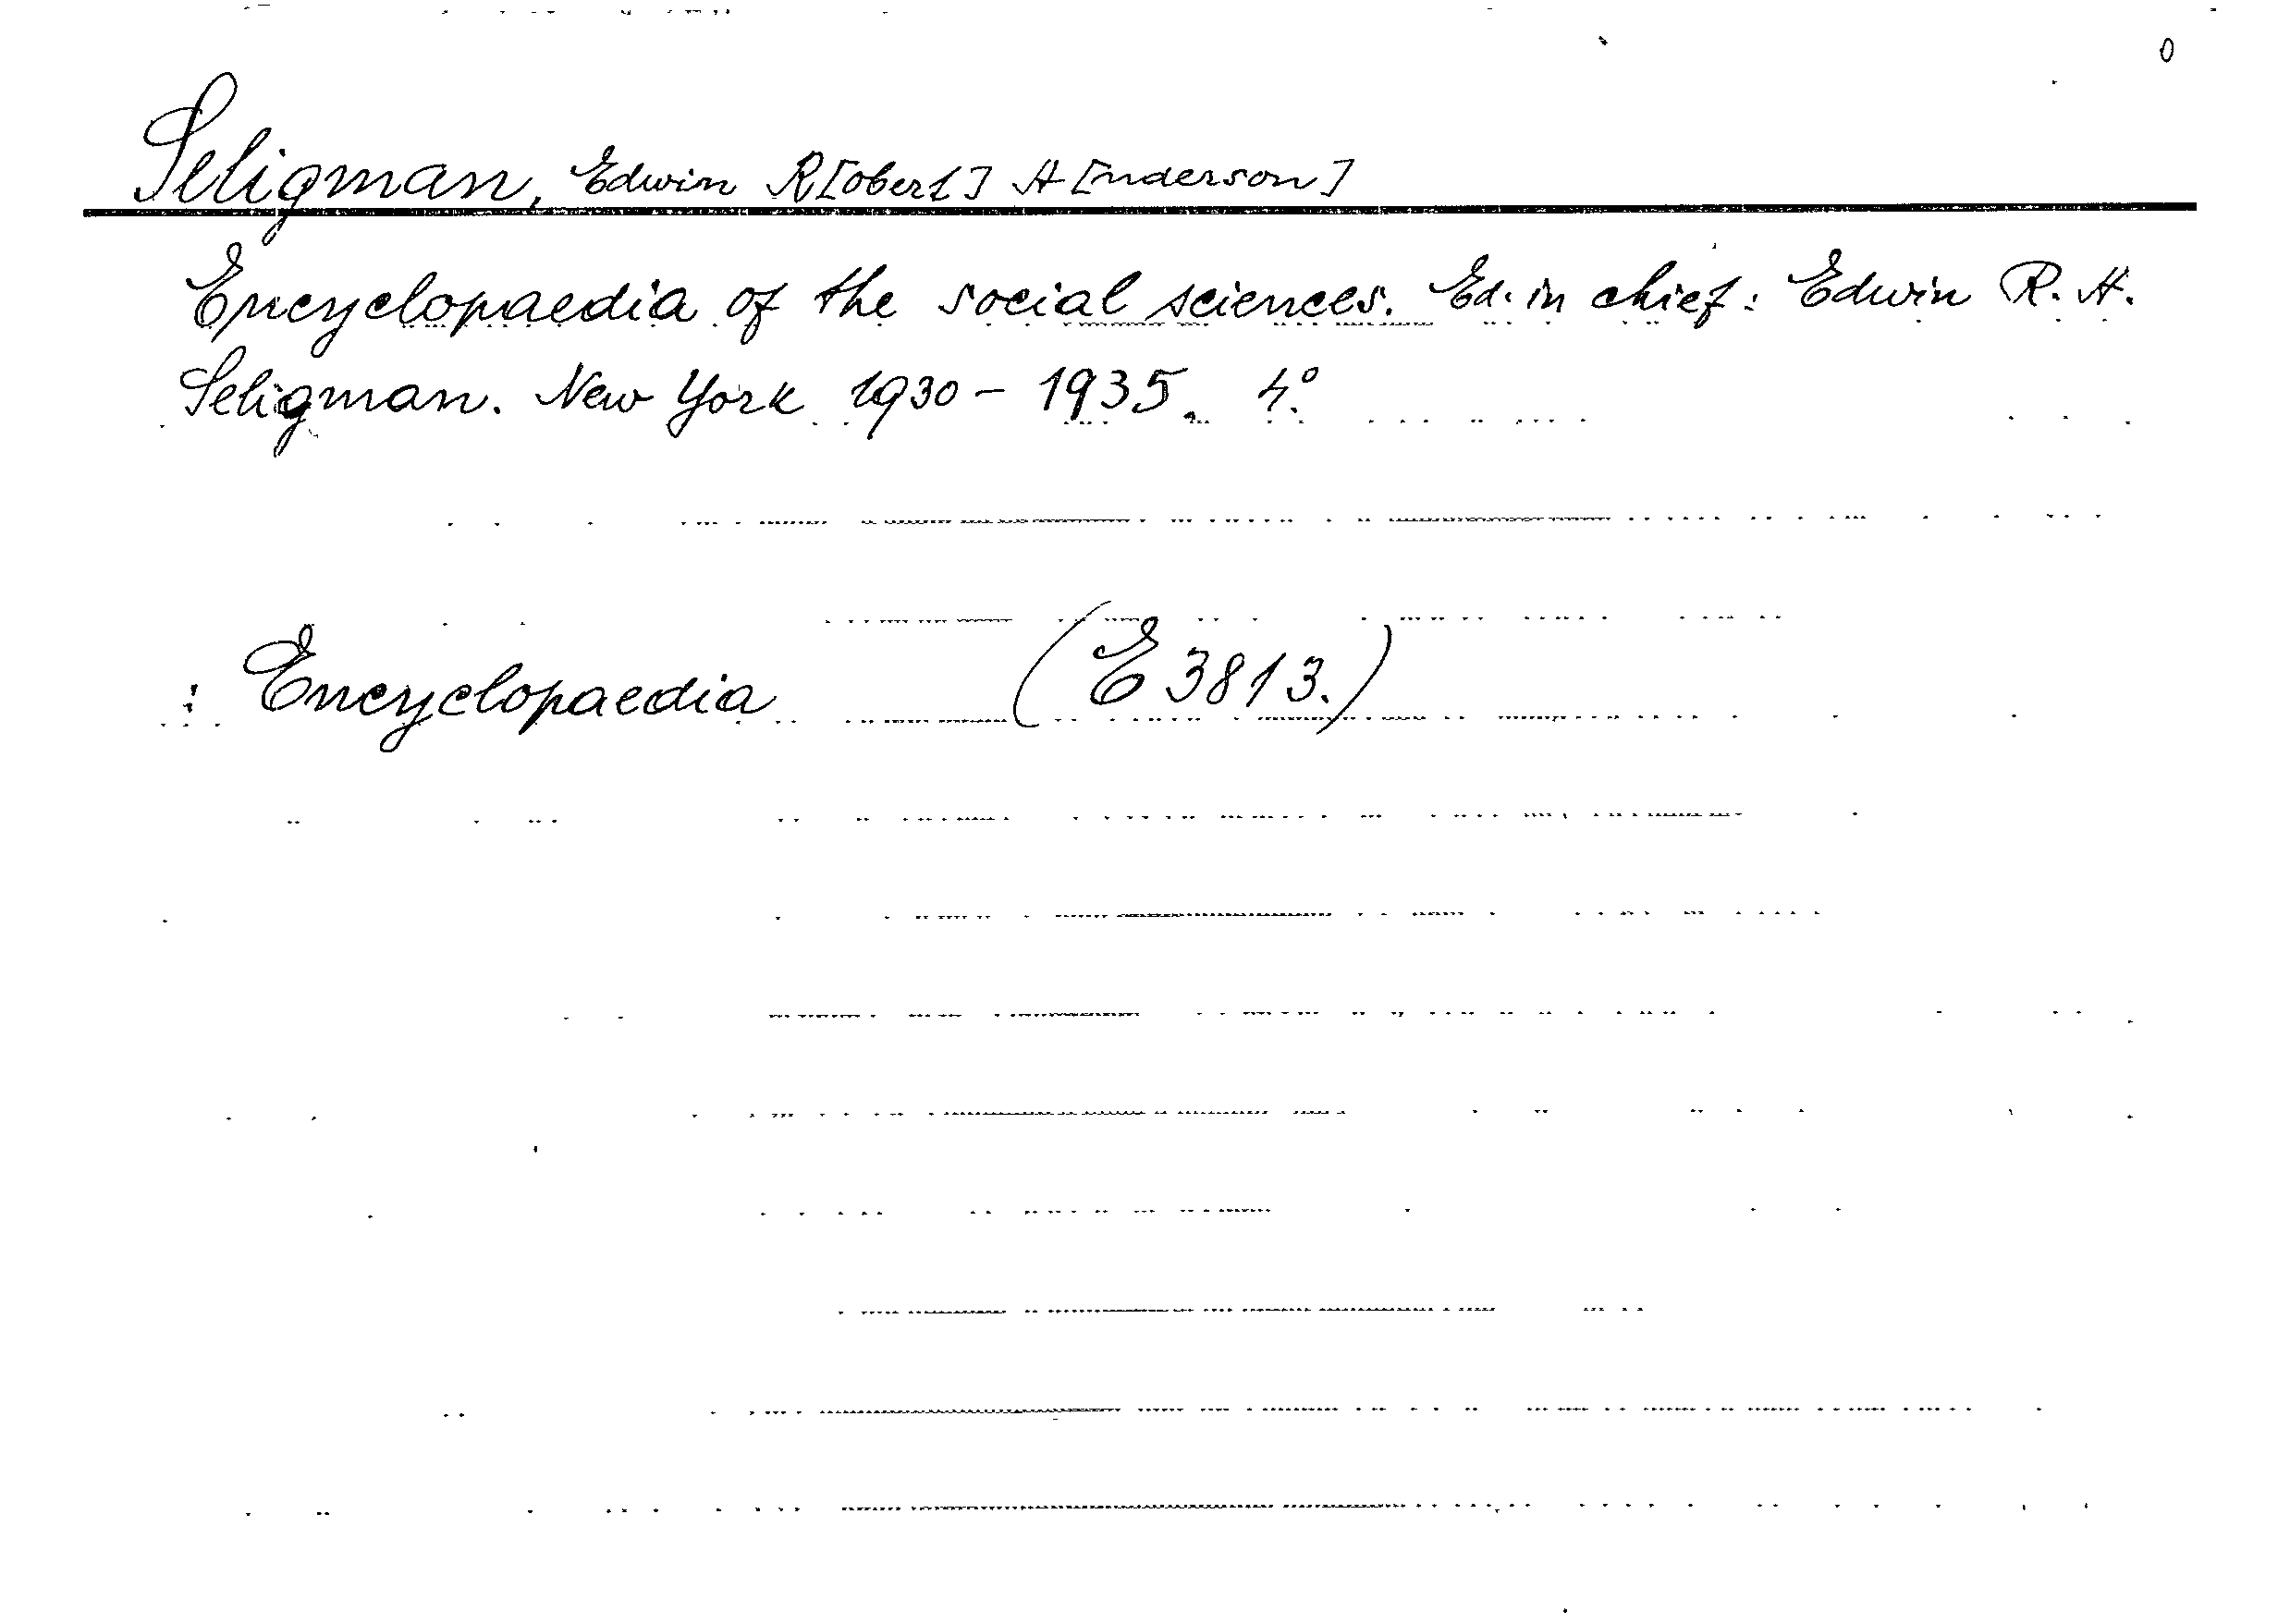 0
Seligman, Edwin R[obert] A[nderson]
Encyclopaedia of the social sciences. Ed. in chief: Edwin R. A.
Seligman. New York 1930-1935. 4°.
: Encyclopaedia (E 3813.)